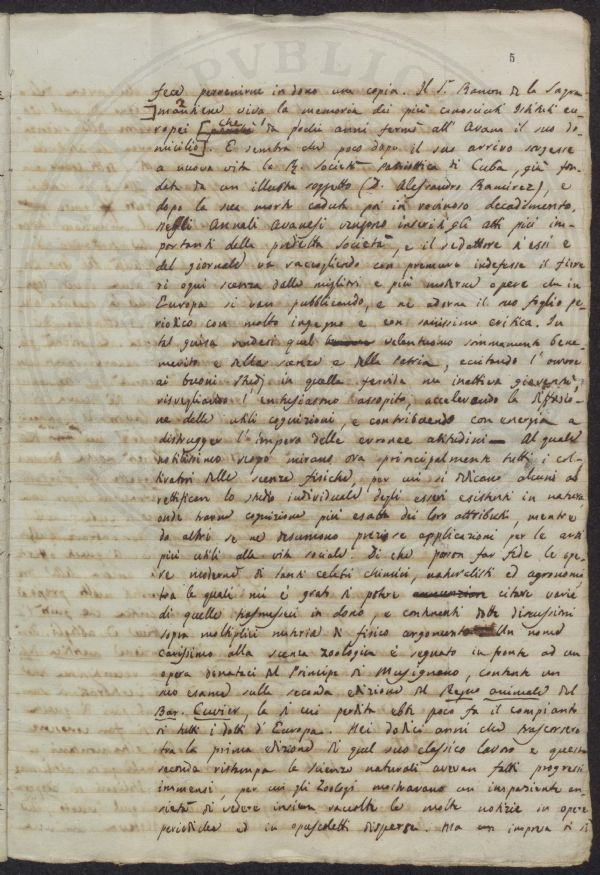 PUBLIC
5
fece pervenirne in dono una copia. Il Sr. Ramon de la Sagra
mantiene viva la memoria dei più conosciuti Istituti eu-
ropei che da pochi anni fermò all'Avana il suo do-
micilio. E sembra che poco dopo il suo arrivo sorgesse
a nuova vita la Rl. Società patriottica di Cuba, già fon-
data da un illustre soggetto (D. Alessandro Ramirez), e
dopo la sua morte caduta poi in rovinoso decadimento.
Negli Annali Avanesi vengono inseriti gli atti più im-
portanti della predetta Società, e il redattore d'essi e
del giornale va raccogliendo con premure indefesse il fiore
di ogni scienza dalle migliori e più moderne opere che in
Europa si van pubblicando, e ne adorna il suo foglio pe-
riodico con molto impegno e con sanissima critica. In
tal guisa rendesi quel valentuomo sommamente bene-
merito e della scienza e della patria, eccitando l'amore
ai buoni studj in quella fervida ma inattiva gioventù,
risvegliando l'entusiasmo assopito, accelerando la diffusio-
ne delle utili cognizioni, e contribuendo con energia a
distrugger l'impero delle erronee abitudini — Al quale
nobilissimo scopo mirano ora principalmente tutti i col-
tivatori delle scienze fisiche, per cui si dedicano alcuni a
rettificar lo studio individuale degli esseri esistenti in natura,
onde trarne cognizione più esatta dei loro attributi, mentre
da altri se ne desumono preziose applicazioni per le arti
più utili alla vita sociale. Di che posson far fede le ope-
re moderne di tanti celebri chimici, naturalisti ed agronomi
tra le quali mi è grato di potere citare varie
di quelle trasmesseci in dono, e contenenti dotte discussioni
sopra moltiplici materie di fisico argomento. Un nome
carissimo alla scienza zoologica è segnato in fronte ad un
opera donataci dal Principe di Musignano, contenente un
suo esame sulla seconda edizione del Regno animale del
Bar. Cuvier, la di cui perdita ebbe poco fa il compianto
di tutti i dotti d'Europa. Nei dodici anni che trascorsero
tra la prima edizione di quel suo classico lavoro e questa
seconda ristampa le scienze naturali avevan fatti progressi
immensi, per cui gli Zoologi mostravano un impaziente an-
sietà di vedere insieme raccolte le molte notizie in opere
periodiche ed in opuscoletti disperse. Ma un impresa di